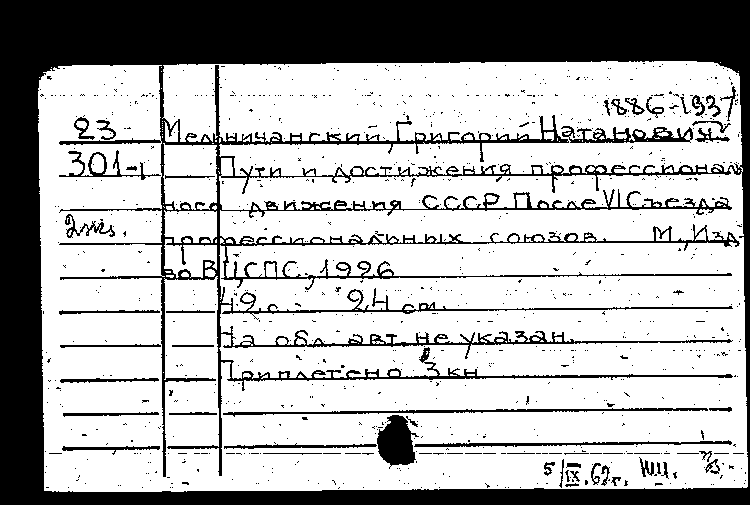 1886-1937
23 Мельничанский, Григорий Натанович.
301-1 Пути и достижения профессиональ
ного движения СССР. После VI Съезда
2экз. профессиональных союзов. М., Изд-
во ВЦСПС, 1926
42 с. 24 см.
На обл. авт. не указан.
Приплетено 3 кн
5/IX.62г.